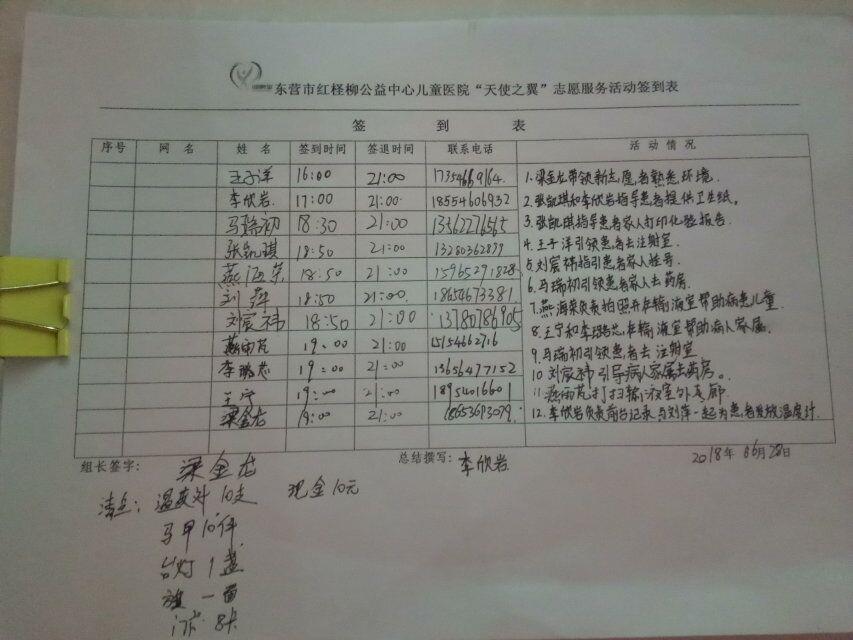 东营市红柽柳公益中心儿童医院“天使之翼”志愿服务活动签到表
签 到 表
序号 网 名 姓 名 签到时间 签退时间 联系电话 活 动 情 况
王子洋 16:00 21:00 17354669164
李欣岩 17:00 21:00 18554606932
马瑞初 18:30 21:00 13362276565
张凯琪 18:50 21:00 13280362899
燕海荣 18:50 21:00 15965291828
刘萍 18:50 21:00 18654673381
刘宸祎 18:50 21:00 13780786905
燕雨芃 19:00 21:00 15154662716
李璐芯 19:00 21:00 13656477152
王宁 19:00 21:00 18954016601
梁金龙 19:00 21:00 18653693079
1.梁金龙带领新志愿者熟悉环境.
2.张凯琪和李欣岩指导患者提供卫生纸.
3.张凯琪指导患者家人打印化验报告.
4.王子洋引领患者去注射室.
5.刘宸祎指引患者家人挂号
6.马瑞初引领患者家人去药房.
7.燕海荣负责拍照并在输液室帮助病患儿童
8.王宁和李璐芯在输液室帮助病人家属.
9.马瑞初引领患者去注射室
10 刘宸祎引导病人家属去药房。
11.燕雨芃打扫输液室外走廊
12.李欣岩负责前台记录与刘萍一起为患者发放温度计.
组长签字: 梁金龙 总结撰写: 李欣岩 2018年06月28日
清点: 温度计10支 现金10元
马甲10件
台灯1盏
旗一面
门卡8张